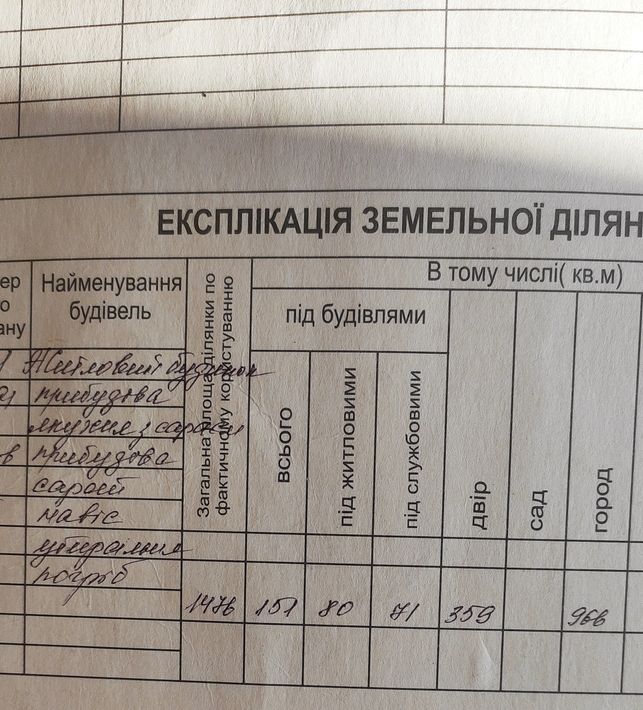 ЕКСПЛІКАЦІЯ ЗЕМЕЛЬНОЇ ДІЛЯН
ер
о
ану
Найменування
будівель
Загальна площа ділянки по
фактичному користуванню
В тому числі( кв.м)
під будівлями
всього
під житловими
під службовими
двір
сад
город
Житловий будинок
прибудова
з сараєм
прибудова
сарай
навіс
убиральня
погріб
1476 151 80 71 359 966